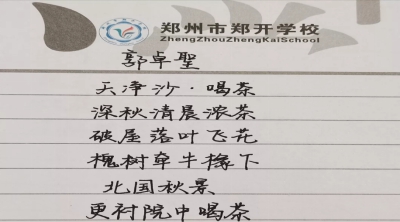 郑州市郑开学校
ZhengZhouZhengKaiSchool
郭卓聖
天净沙·喝茶
深秋清晨浓茶
破屋落叶飞花
槐树牵牛椽下
北国秋景
更衬院中喝茶